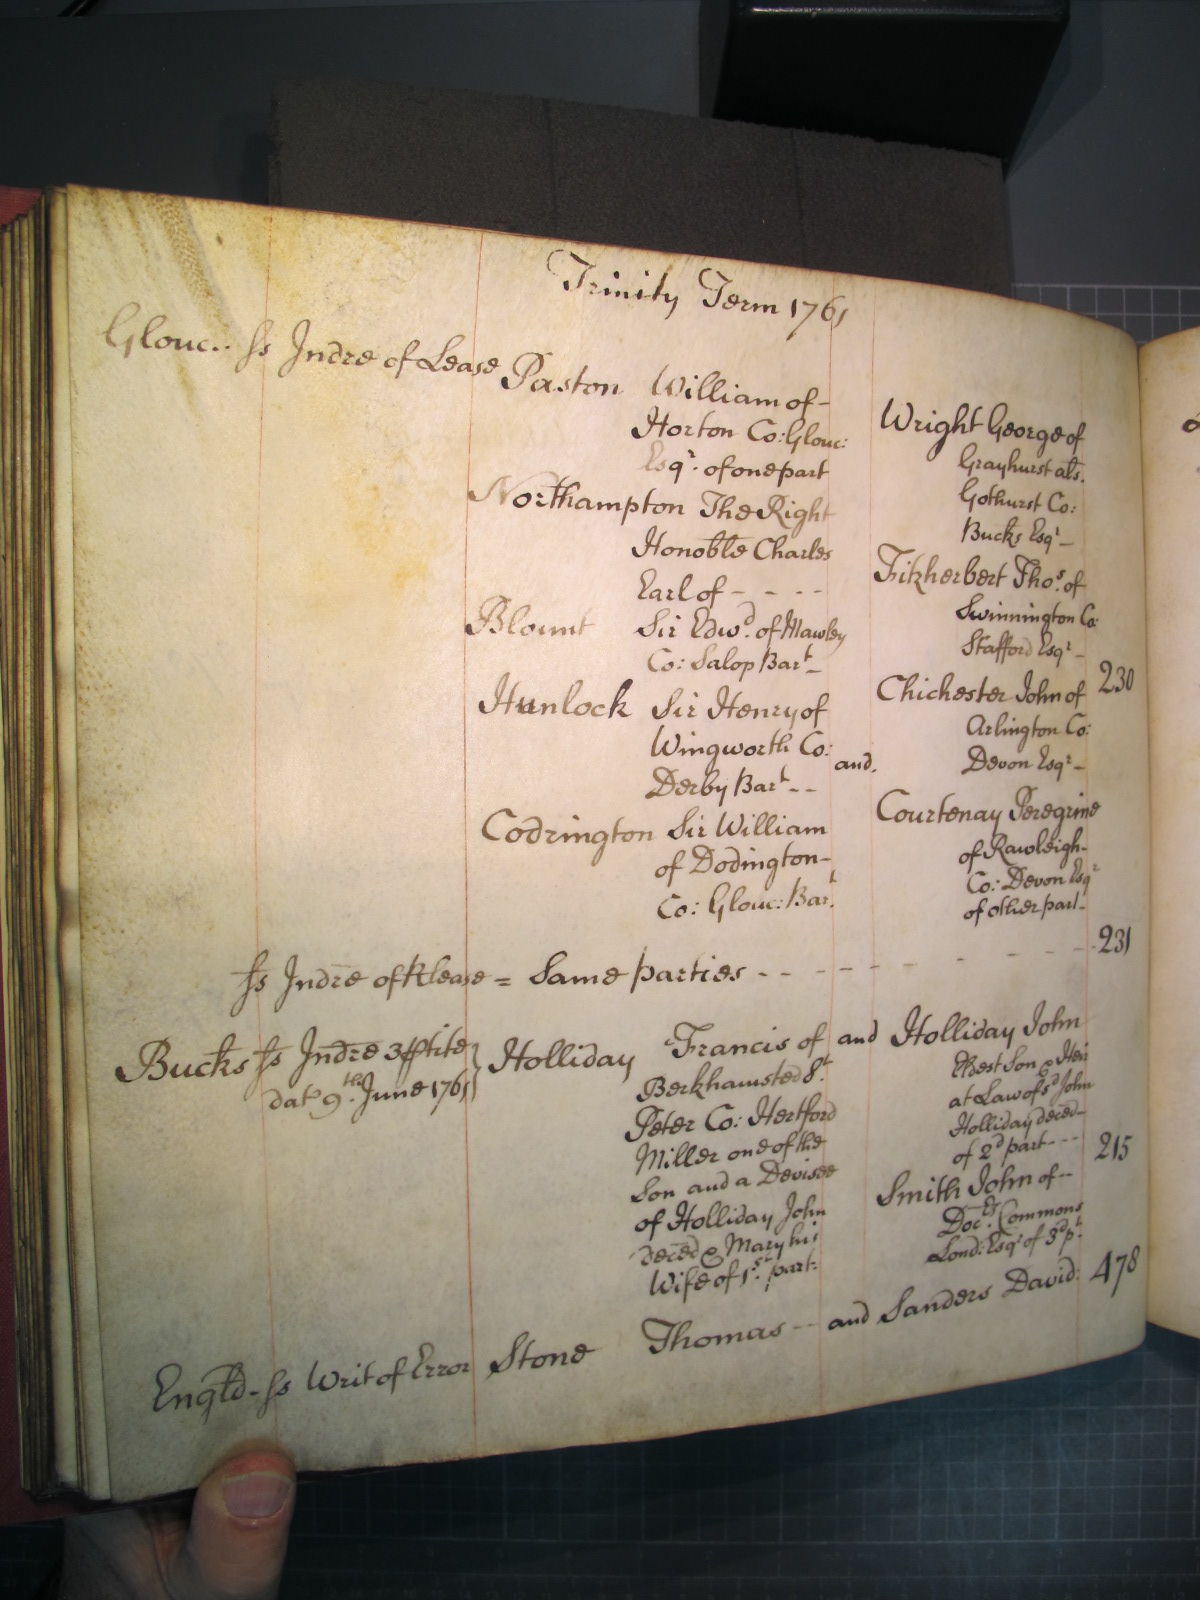 Trinity Term 1761
Glouc.. ſs Indre of Lease Paston William of-
Horton Co: Glouc:
Esqr. of one part
Northampton The Right
Honoble Charles
Earl of - - - -
Blount Sir Edwd. of Mawley
Co: Salop Bart_
Hunlock Sir Henry of
Wingworth Co:
Derby Bart--
Codrington Sir William
of Dodington-
Co: Glouc: Bart.
and.
Wright George of
Grayhurst als.
Gothurst Co:
Bucks Esqr_
Fitzherbert Thos. of
Swinnington Co:
Stafford Esqr_
Chichester John of 230
Arlington Co:
Devon Esqr_
Courtenay Peregrine
of Rawleigh-
Co: Devon Esqr
of other part_
ſs Indre of Rlease = Same parties - - - - - - - - - 231
Bucks ſs Indre 3ptite
dat 9th. June 1761
Holliday Francis of
Berkhamsted St.
Peter Co: Hertford
Miller one of the
Son and a Devisee
of Holliday John
deced & Mary his
Wife of 1st. part:
and Holliday John
Eldest Son & Heir
at Law of sd John
Holliday deced_
of 2d part - - - 215
Smith John of--
Doctrs. Commons
Lond: Esqr of 3d pt.
Engld- ſs Writ of Error Stone Thomas -- and Sanders David: 478